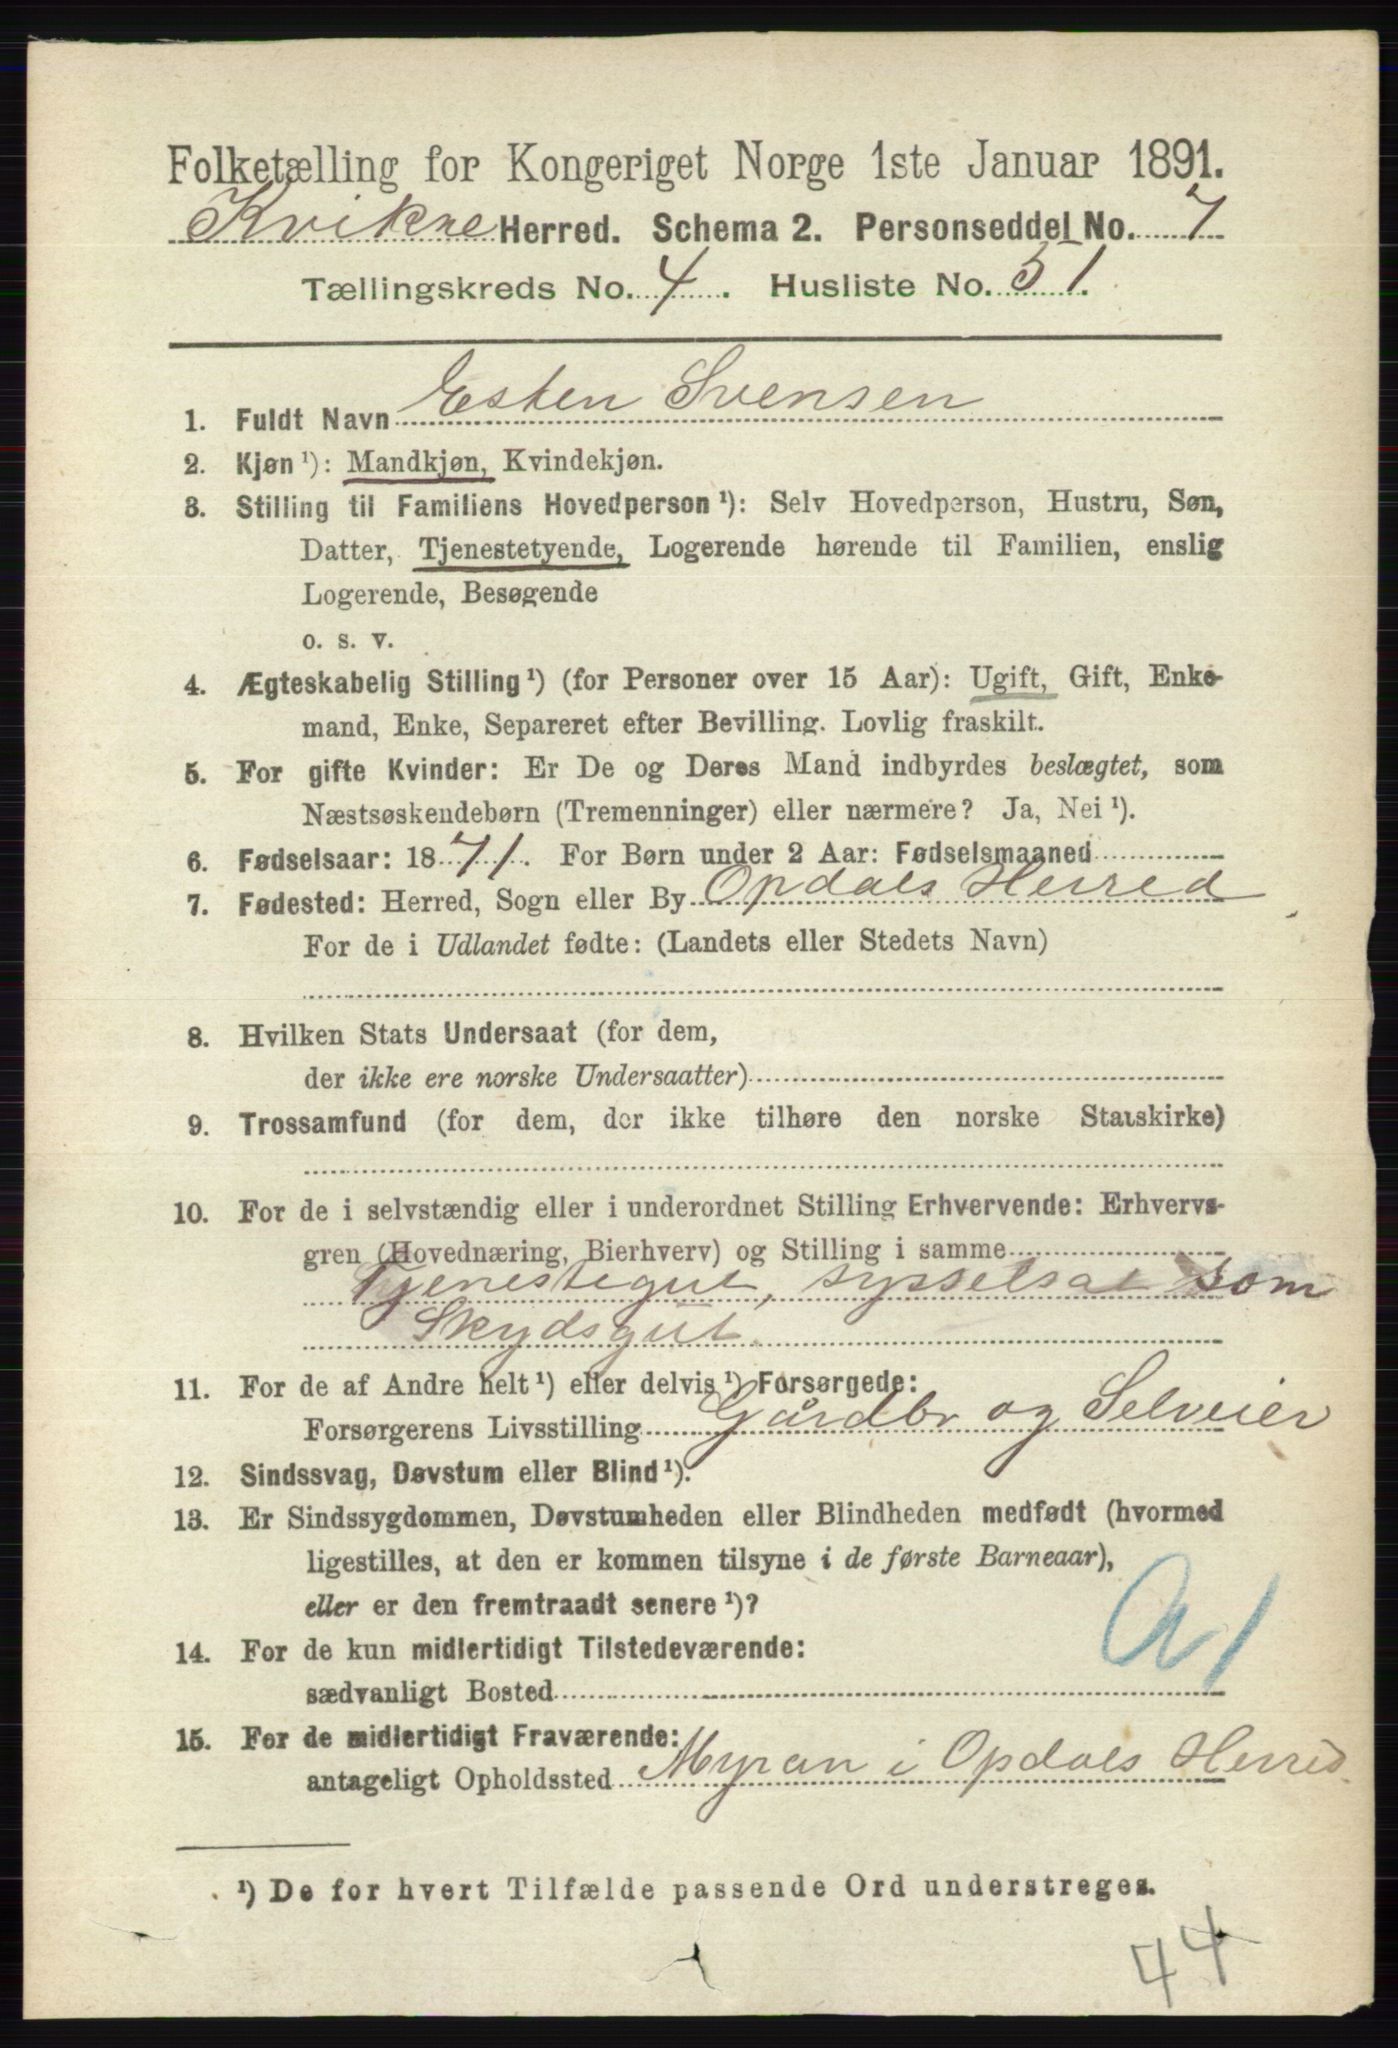 Folketælling for Kongeriget Norge 1ste Januar 1891.
Kvikne Herred. Schema 2. Personseddel No. 7
Tællingskreds No. 4. Husliste No. 51.
1. Fuldt Navn Esten Svensen
2. Kjøn¹): Mandkjøn, Kvindekjøn.
3. Stilling til Familiens Hovedperson¹): Selv Hovedperson, Hustru, Søn,
Datter, Tjenestetyende, Logerende hørende til Familien, enslig
Logerende, Besøgende
o. s. v.
4. Ægteskabelig Stilling¹) (for Personer over 15 Aar): Ugift, Gift, Enke-
mand, Enke, Separeret efter Bevilling. Lovlig fraskilt.
5. For gifte Kvinder: Er De og Deres Mand indbyrdes beslægtet, som
Næstsøskendebørn (Tremenninger) eller nærmere? Ja, Nei¹).
6. Fødselsaar: 1871. For Børn under 2 Aar: Fødselsmaaned
7. Fødested: Herred, Sogn eller By Opdals Herred
For de i Udlandet fødte: (Landets eller Stedets Navn)
8. Hvilken Stats Undersaat (for dem,
der ikke ere norske Undersaatter)
9. Trossamfund (for dem, der ikke tilhøre den norske Statskirke)
10. For de i selvstændig eller i underordnet Stilling Erhvervende: Erhvervs-
gren (Hovednæring, Bierhverv) og Stilling i samme
Tjenestegut, sysselsat som
Skydsgut.
11. For de af Andre helt¹) eller delvis¹) Forsørgede:
Forsørgerens Livsstilling Gårdbr og Selveier
12. Sindssvag, Døvstum eller Blind¹).
13. Er Sindssygdommen, Døvstumheden eller Blindheden medfødt (hvormed
ligestilles, at den er kommen tilsyne i de første Barneaar),
eller er den fremtraadt senere¹)?
14. For de kun midlertidigt Tilstedeværende:
sædvanligt Bosted
15. For de midlertidigt Fraværende:
antageligt Opholdssted Myran i Opdals Herred.
¹) De for hvert Tilfælde passende Ord understreges.
44